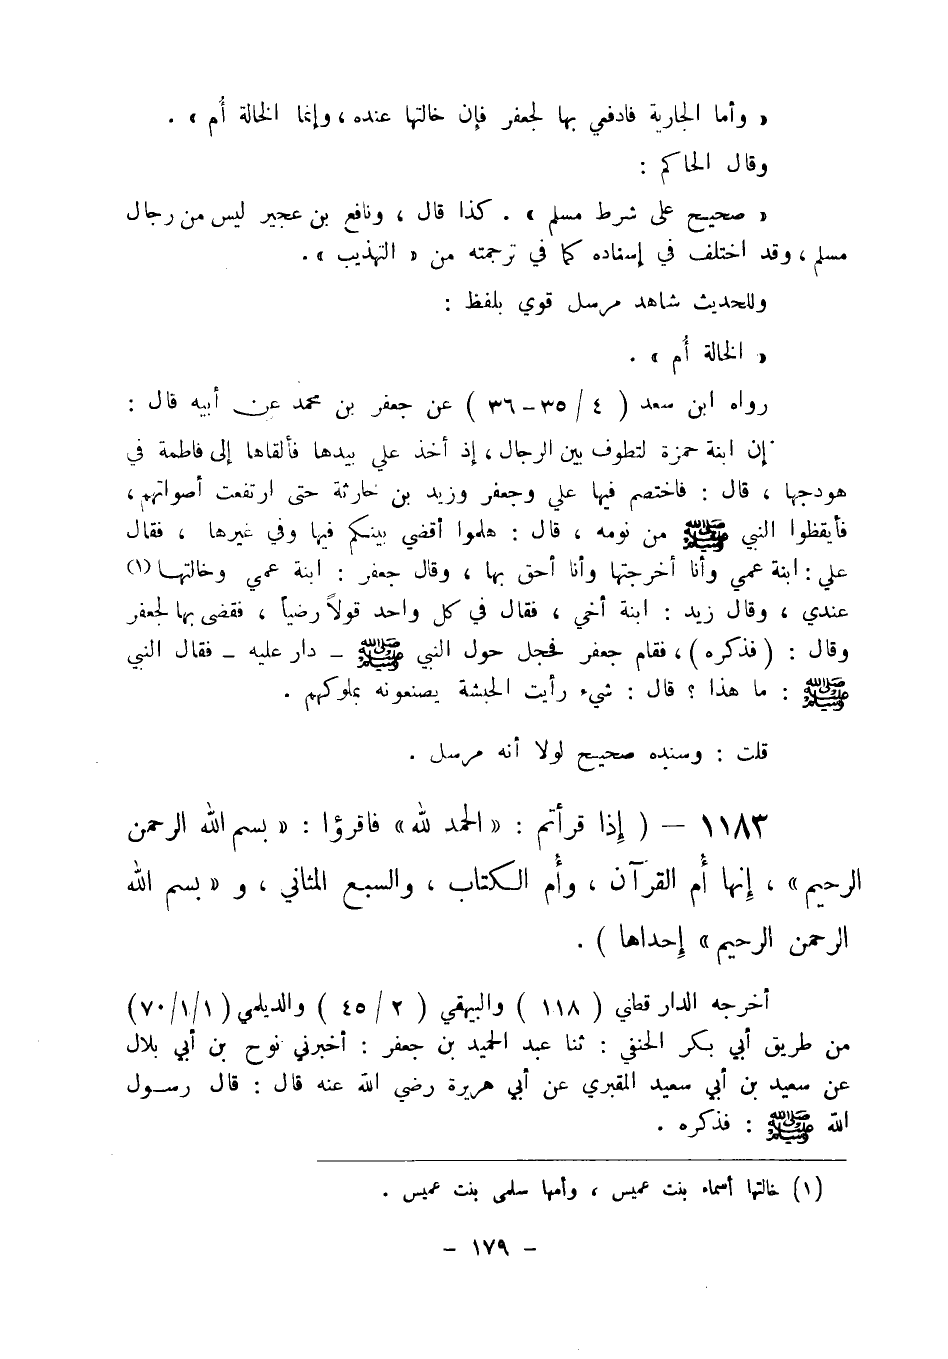 « وأما الجارية فادفعي بها لجعفر فإن خالتها عنده ، وإنما الخالة أُم » .
وقال الحاكم :
« صحيح على شرط مسلم » . كذا قال ، ونافع بن عجير ليس من رجال
مسلم ، وقد اختلف في إسناده كما في ترجمته من « التهذيب » .
وللحديث شاهد مرسل قوي بلفظ :
« الخالة أُم » .
رواه ابن سعد ( ٤ / ٣٥ – ٣٦ ) عن جعفر بن محمد عن أبيه قال :
إن ابنة حمزة لتطوف بين الرجال ، إذ أخذ علي بيدها فألقاها إلى فاطمة في
هودجها ، قال : فاختصم فيها علي وجعفر وزيد بن حارثة حتى ارتفعت أصواتهم ،
فأيقظوا النبي ﷺ من نومه ، قال : هلموا أقضي بينكم فيها وفي غيرها ، فقال
علي : ابنة عمي وأنا أخرجتها وأنا أحق بها ، وقال جعفر : ابنة عمي وخالتها (١)
عندي ، وقال زيد : ابنة أخي ، فقال في كل واحد قولاً رضياً ، فقضى بها لجعفر
وقال : ( فذكره ) ، فقام جعفر فحجل حول النبي ﷺ – دار عليه – فقال النبي
ﷺ : ما هذا ؟ قال : شيء رأيت الحبشة يصنعونه بملوكهم .
قلت : وسنده صحيح لولا أنه مرسل .
١١٨٣ – ( إذا قرأتم : « الحمد لله » فاقرؤا : « بسم الله الرحمن
الرحيم » ، إنها أُم القرآن ، وأُم الكتاب ، والسبع المثاني ، و « بسم الله
الرحمن الرحيم » إحداها ) .
أخرجه الدار قطني ( ١١٨ ) والبيهقي ( ٢ / ٤٥ ) والديلمي ( ٧٠/١/١ )
من طريق أبي بكر الحنفي : ثنا عبد الحميد بن جعفر : أخبرني نوح بن أبي بلال
عن سعيد بن أبي سعيد المقبري عن أبي هريرة رضي الله عنه قال : قال رسول
الله ﷺ : فذكره .
(١) خالتها أسماء بنت عميس ، وأمها سلمى بنت عميس .
– ١٧٩ –